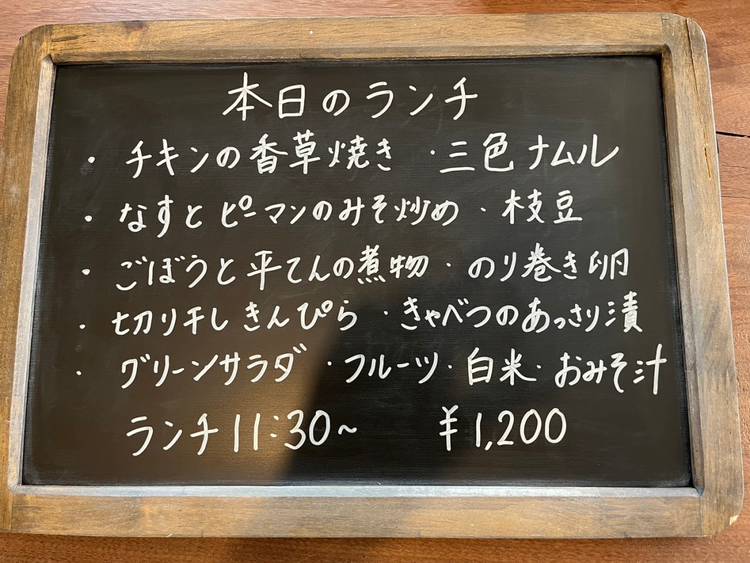 本日のランチ
・チキンの香草焼き ・三色ナムル
・なすとピーマンのみそ炒め ・枝豆
・ごぼうと平てんの煮物 ・のり巻き卵
・切り干しきんぴら ・きゃべつのあっさり漬
・グリーンサラダ ・フルーツ ・白米 ・おみそ汁
ランチ 11:30~ ¥1,200